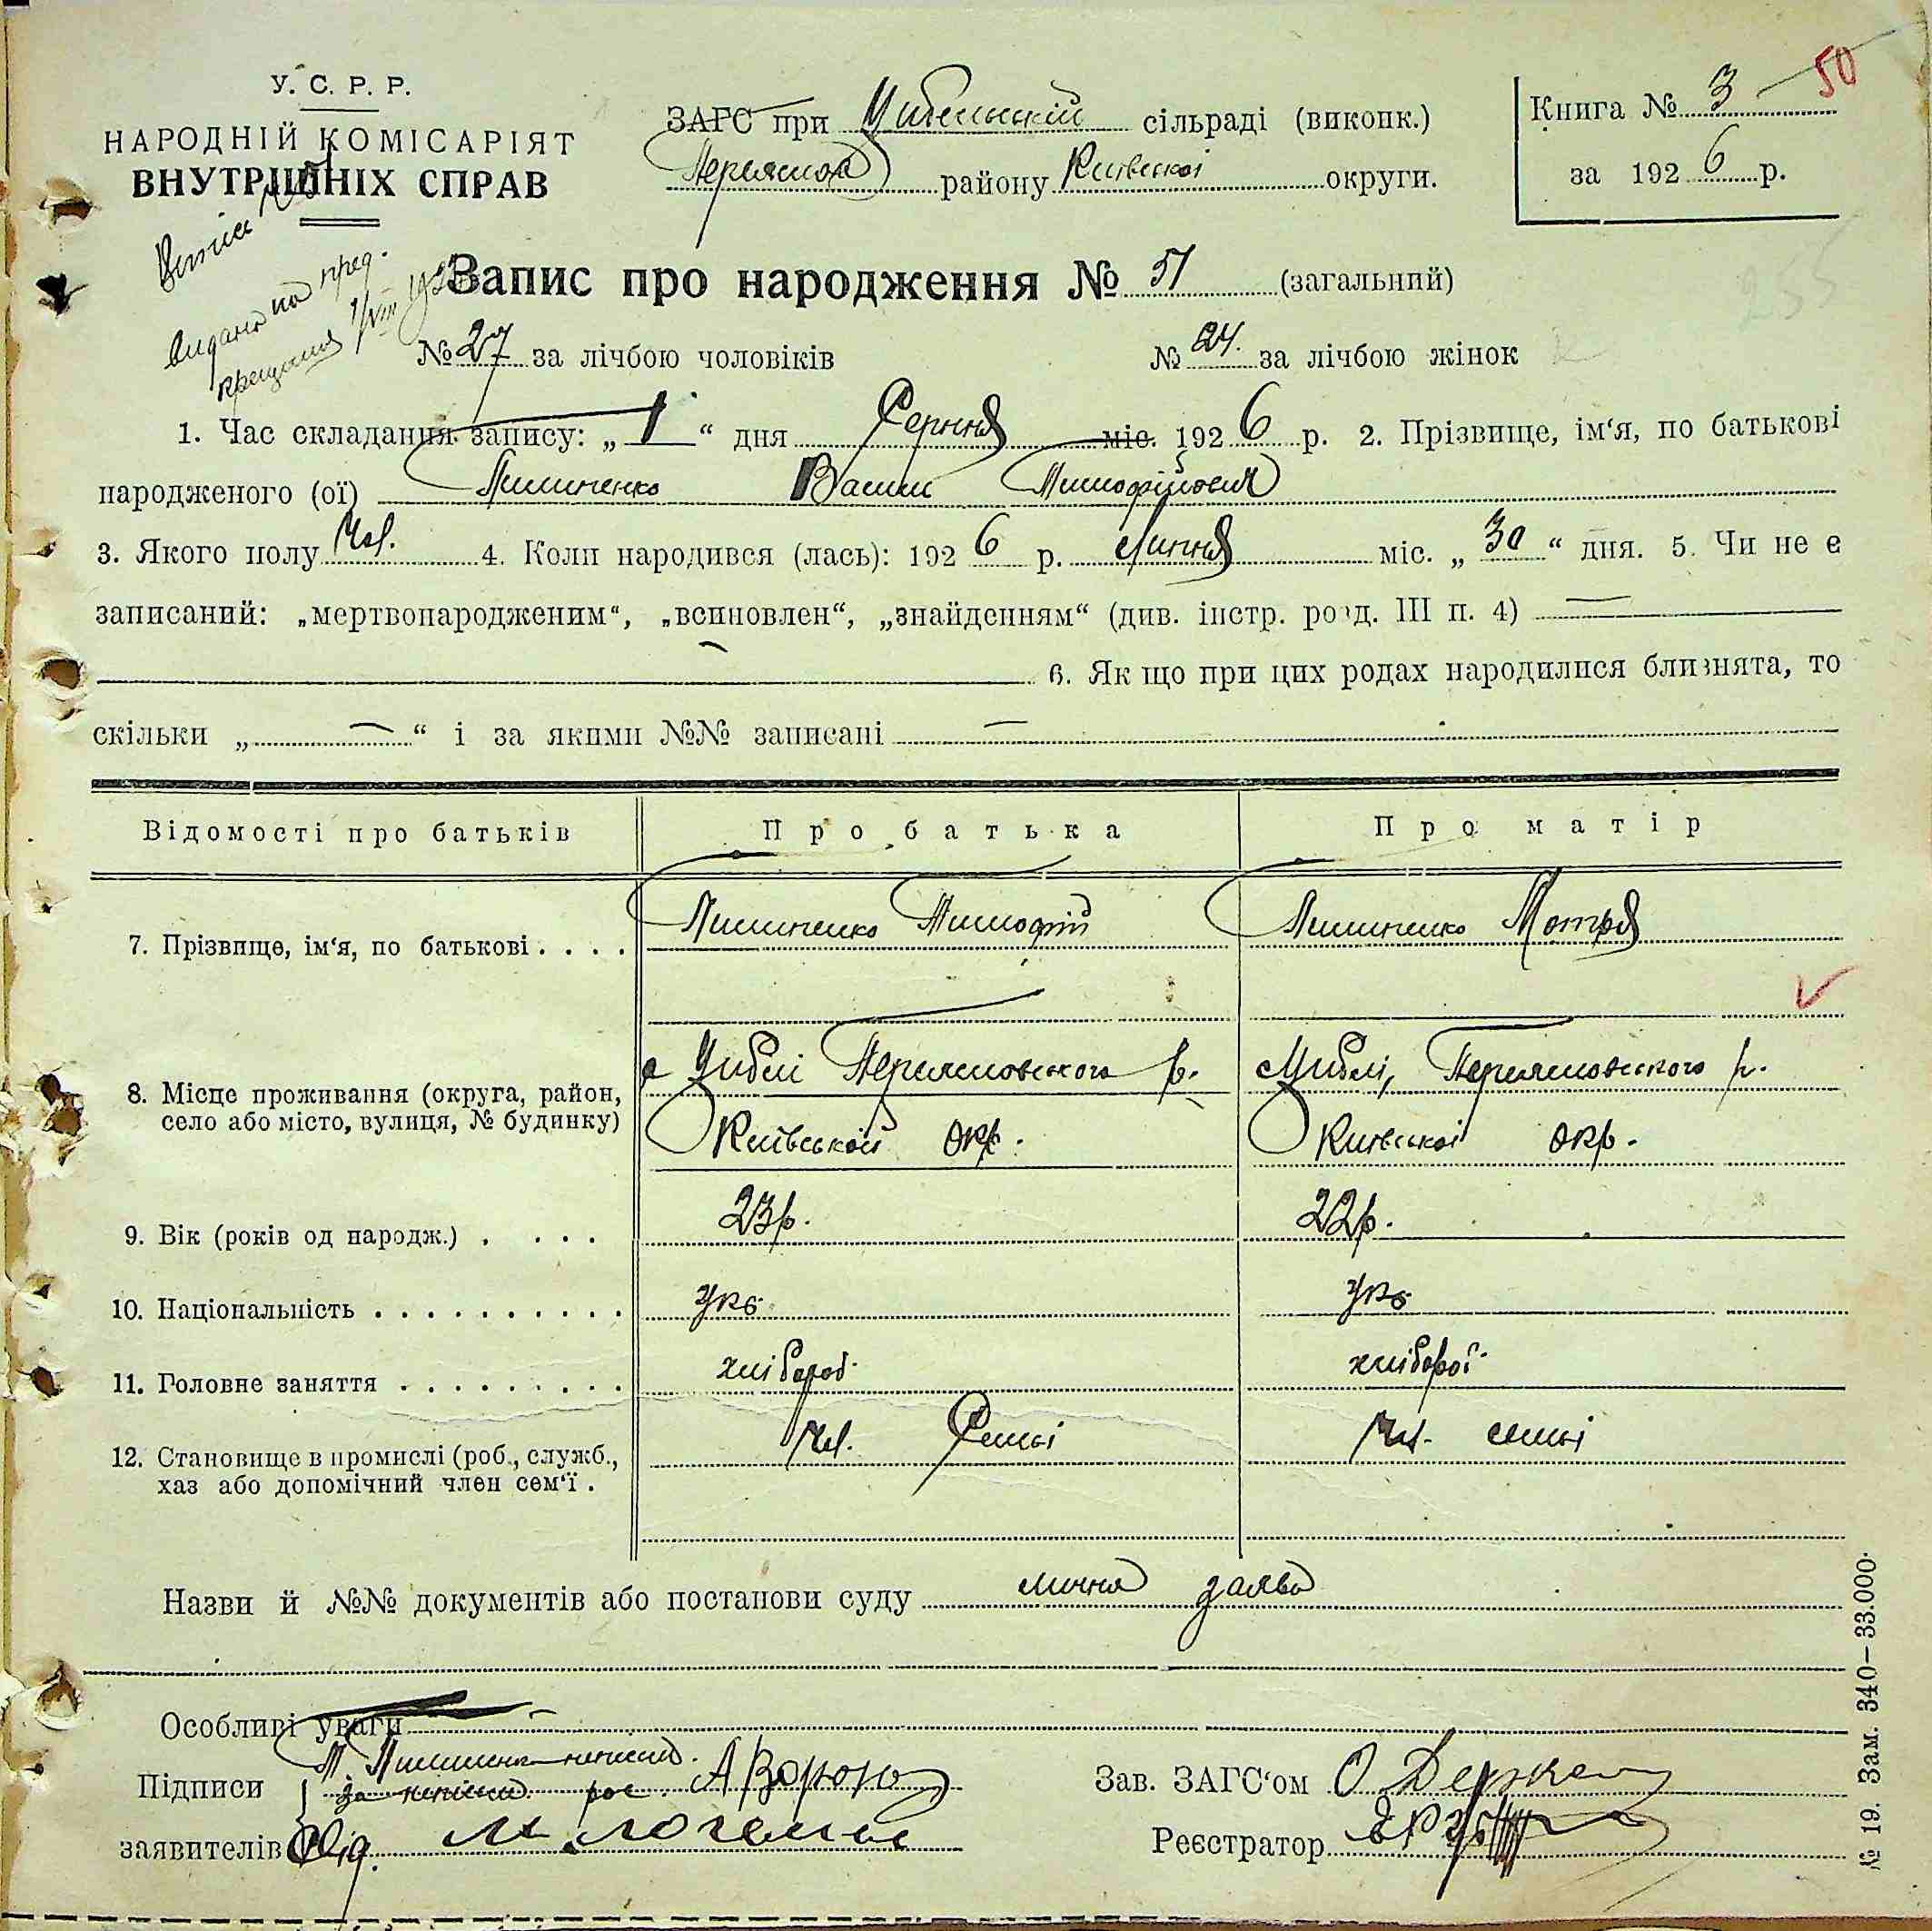 У. С. Р. Р.
НАРОДНІЙ КОМІСАРІЯТ
ВНУТРІШНІХ СПРАВ
ЗАГС при Циблівській сільраді (виконк.)
Переяслов району Київської округи.
Книга № 3 50
за 192 6 р.
Витяг № 51
видано на пред.
хрещення 1/VIII
Запис про народження № 51 (загальний)
№ 27 за лічбою чоловіків № 24. за лічбою жінок
1. Час складання запису: „ 1 “ дня Серпня міс. 192 6 р. 2. Прізвище, ім‘я, по батькові
народженого (ої) Василь Тимофійович
3. Якого полу Чол. 4. Коли народився (лась): 192 6 р. Липня міс. „ 30 “ дня. 5. Чи не є
записаний: „мертвонародженим“, „всиновлен“, „знайденням“ (див. інстр. розд. III п. 4) —
6. Як що при цих родах народилися близнята, то
скільки „ — “ і за якими №№ записані —
Відомості про батьків Про батька Про матір
7. Прізвище, ім‘я, по батькові . . . . Тимофій Мотря
8. Місце проживання (округа, район, село або місто, вулиця, № будинку) с Циблі Переясловського р. Київській окр. с Циблі, Переясловського р. Київської окр.
9. Вік (років од народж.) . . . . 23 р. 22 р.
10. Національність . . . . . . . . . . укр. укр.
11. Головне заняття . . . . . . . . . хлібороб. хлібороб.
12. Становище в промислі (роб., служб., хаз або допомічний член сем‘ї . Чл. Семьї Чл. семьї
Назви й №№ документів або постанови суду лична заява
Особливі уваги —
Підписи Т. неписьм.
за неписьм. рос.
заявителів Свід.
Зав. ЗАГС‘ом О
Реєстратор
№ 19. Зам. 340–33.000.